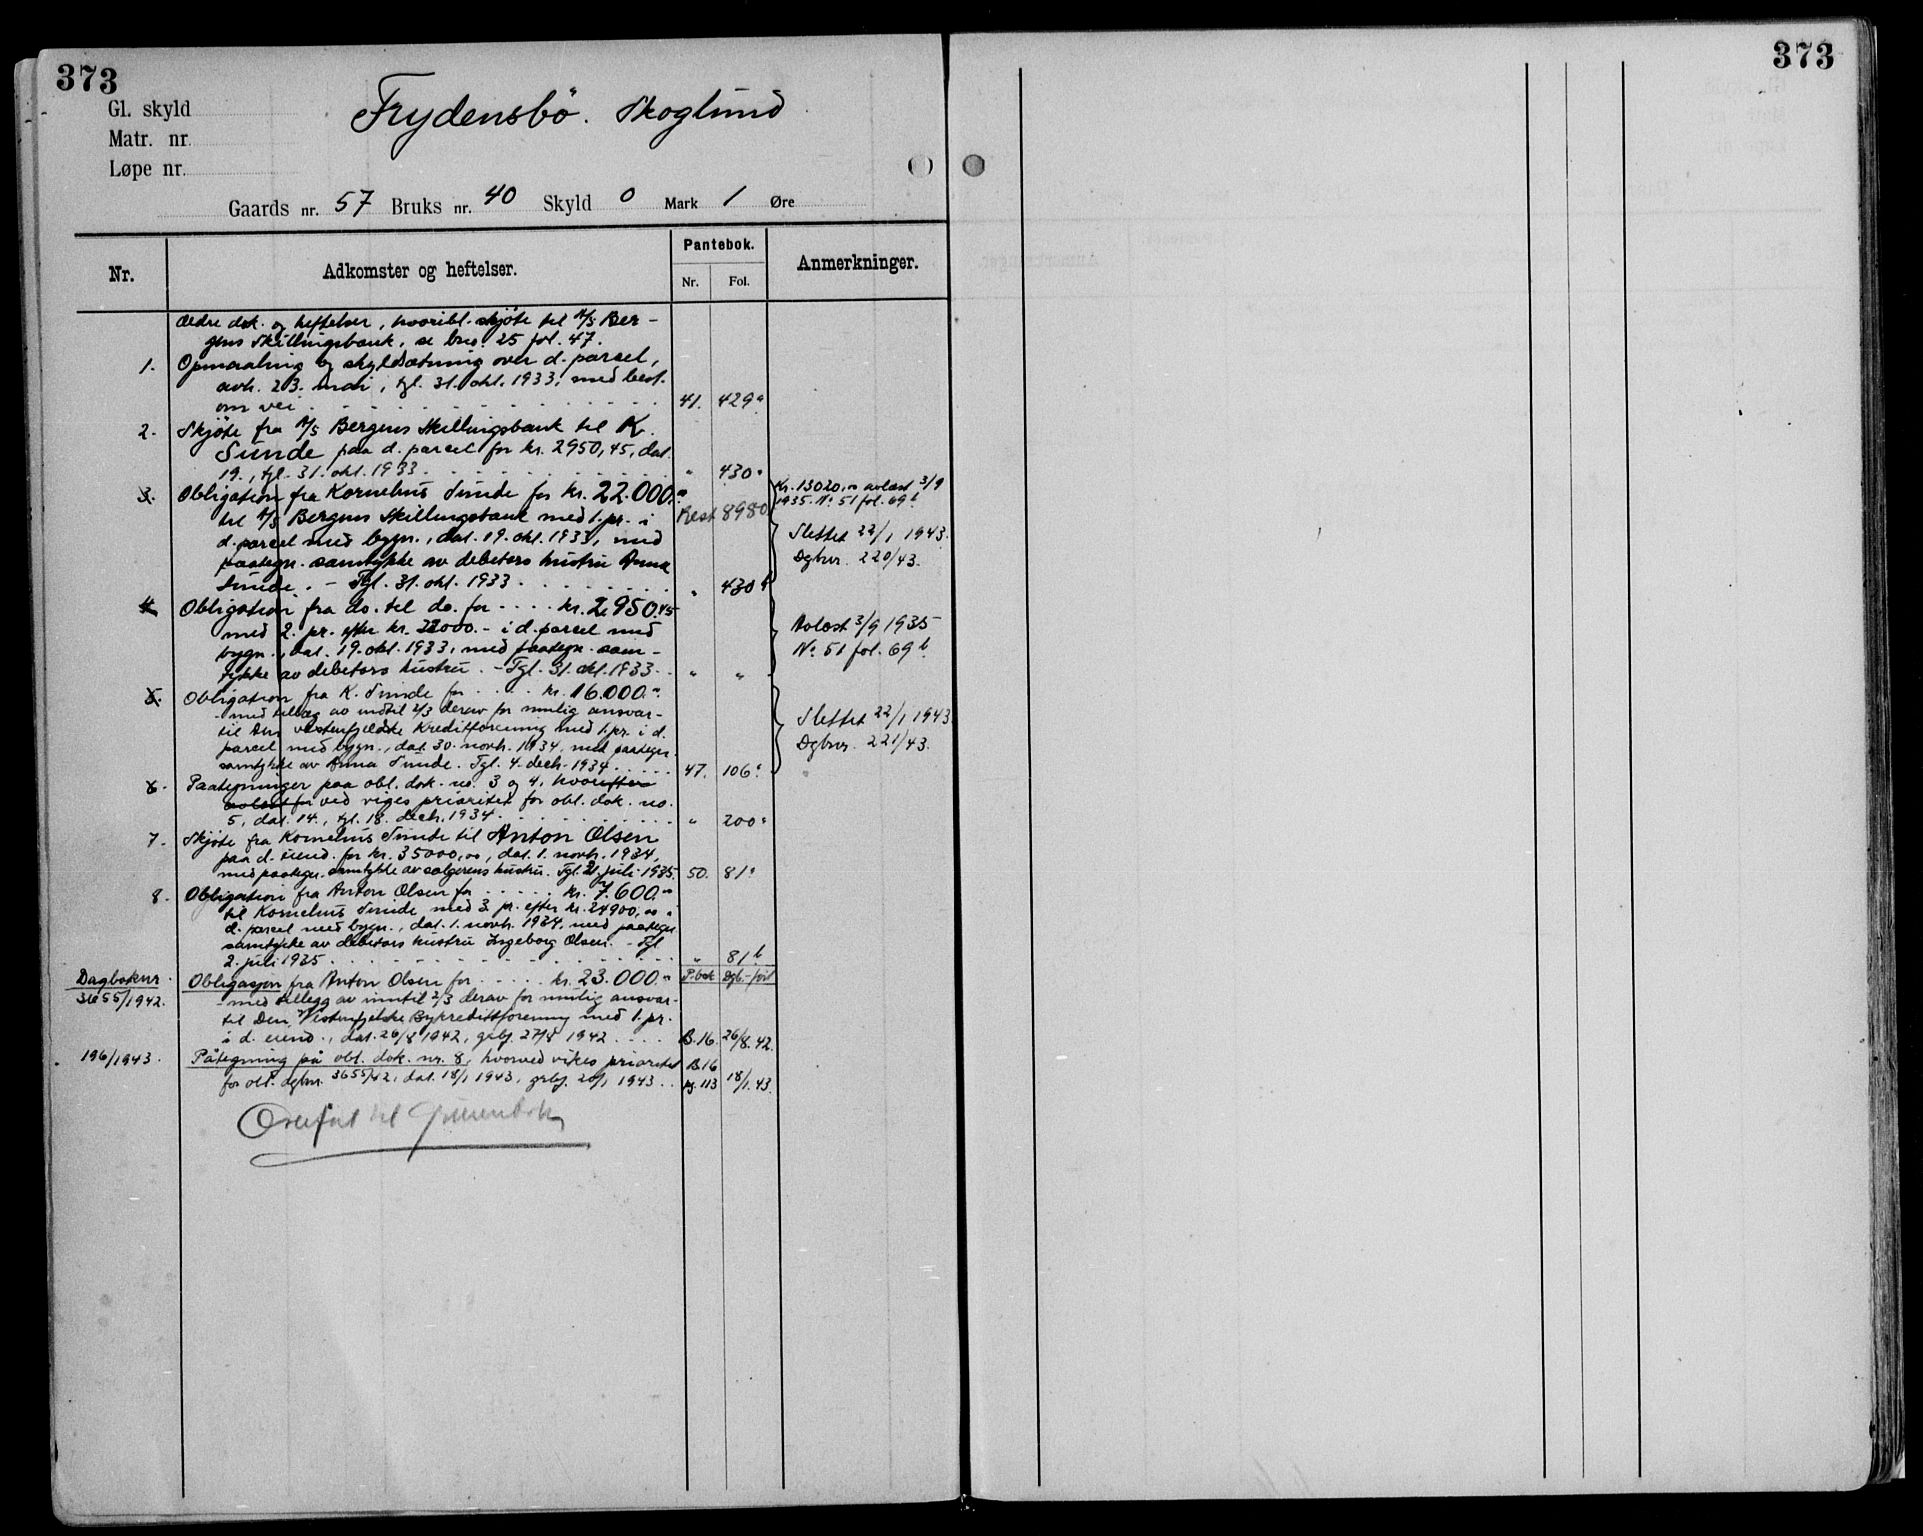 373
373
Gl. skyld
Matr. nr.
Løpe nr.
Frydensbö. Skoglund
Gaards nr. 57 Bruks nr. 40 Skyld 0 Mark 1 Øre
Nr.
Adkomster og heftelser.
Pantebok.
Nr. Fol.
Anmerkninger.
Ældre dok. og heftelser, hvoribl. skjöte til A/S Ber-
gens Skillingsbank, se bruk 25 fol. 47.
1. Opmaaling og skyldsætning over d. parsel,
avh. 23. mai, tgl. 31. okt. 1933, med best.
om vei 41. 429a
2. Skjöte fra A/S Bergens Skillingsbank til K.
Sunde paa d. parcel for kr. 2950,45, dat.
19., tgl. 31. okt. 1933 " 430a
3. Obligation fra Kornelius Sunde for kr. 22.000.-
til A/S Bergens Skillingsbank med 1. pr. i Rest 8980
d. parcel med bygn., dat. 19. okt. 1933, med
paategn. samtykke av debetors hustru Anna
Sunde. - Tgl. 31. okt. 1933 " 430b
Kr. 13020,00 avlæst 3/9
1935. No 51 fol. 69b
Slettet 22/1 1943.
Dgbnr. 220/43.
4. Obligation fra do. til do. for kr. 2.950.45
med 2. pr. efter kr. 22000.- i d. parcel med
bygn., dat. 19. okt. 1933, med paategn. sam-
tykke av debetors hustru. - Tgl. 31. okt. 1933 " "
Avlæst 3/9 1935
No 51 fol. 69b
5. Obligation fra K. Sunde for kr. 16.000.-
- med tillæg av indtil 2/3 derav for mulig ansvar -
til Den vestenfjeldske Kreditforening med 1. pr. i d.
parcel med bygn., dat. 30. novb. 1934, med paategn.
samtykke av Anna Sunde. Tgl. 4. decb. 1934 47. 106a
Slettet 22/1 1943
Dgbnr. 221/43.
6. Paategninger paa obl. dok. no. 3 og 4, hvorefter
avlæst for ved viges prioritet for obl. dok. no.
5, dat. 14., tgl. 18. decb. 1934 " 200a
7. Skjöte fra Kornelius Sunde til Anton Olsen
paa d. eiend. for kr. 35000,00, dat. 1. novb. 1934,
med paategn. samtykke av sælgerens hustru. Tgl. 2. juli 1935. 50. 81a
8. Obligation fra Anton Olsen for kr. 7.600.-
til Kornelius Sunde med 3. pr. efter kr. 24900,00 i
d. parcel med bygn., dat. 1. novb. 1934, med paategn.
samtykke av debetors hustru Ingeborg Olsen. - Tgl.
2. juli 1935 " 81b
Dagboknr. P.bok Dgb.-förl
3655/1942. Obligasjon fra Anton Olsen for kr. 23.000.-
- med tillegg av inntil 2/3 derav for mulig ansvar -
til Den Vestenfjelske Bykredittforening med 1. pr.
i d. eiend., dat. 26/8 1942, grbj. 27/8 1942 B.16. 26/8.42.
196/1943. Påtegning på obl. dok. nr. 8, hvorved vikes prioritet B.16
for obl. dgbnr. 3655/42, dat. 18/1 1943, grbj. 20/1 1943 pg. 113 18/1.43.
Overført til